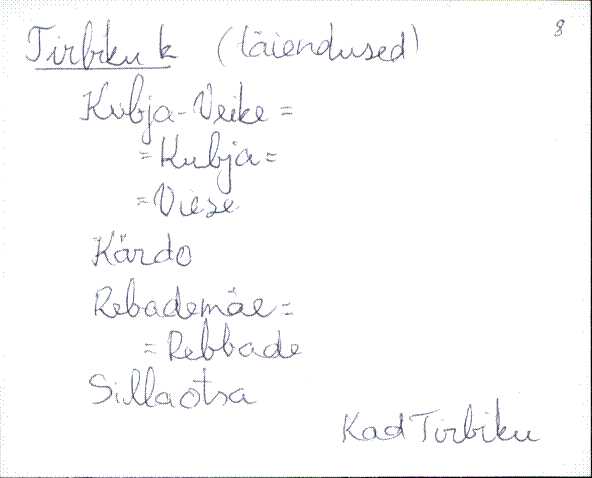 8
Tirbiku k (täiendused)
Kubja-Veike =
= Kubja =
= Viese
Kärdo
Rebademäe =
= Rebbade
Sillaotsa
Kad Tirbiku